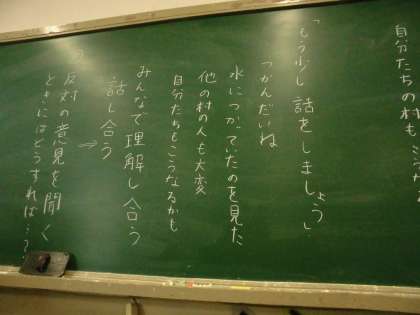 自分たちの村も
「もう少し 話をしましょう」
つかんだいね
水につかっていたのを見た
他の村の人も大変
自分たちもこうなるかも
みんなで理解し合う
話し合う
⇒
反対の意見を聞く
ときにはどうすれば…？